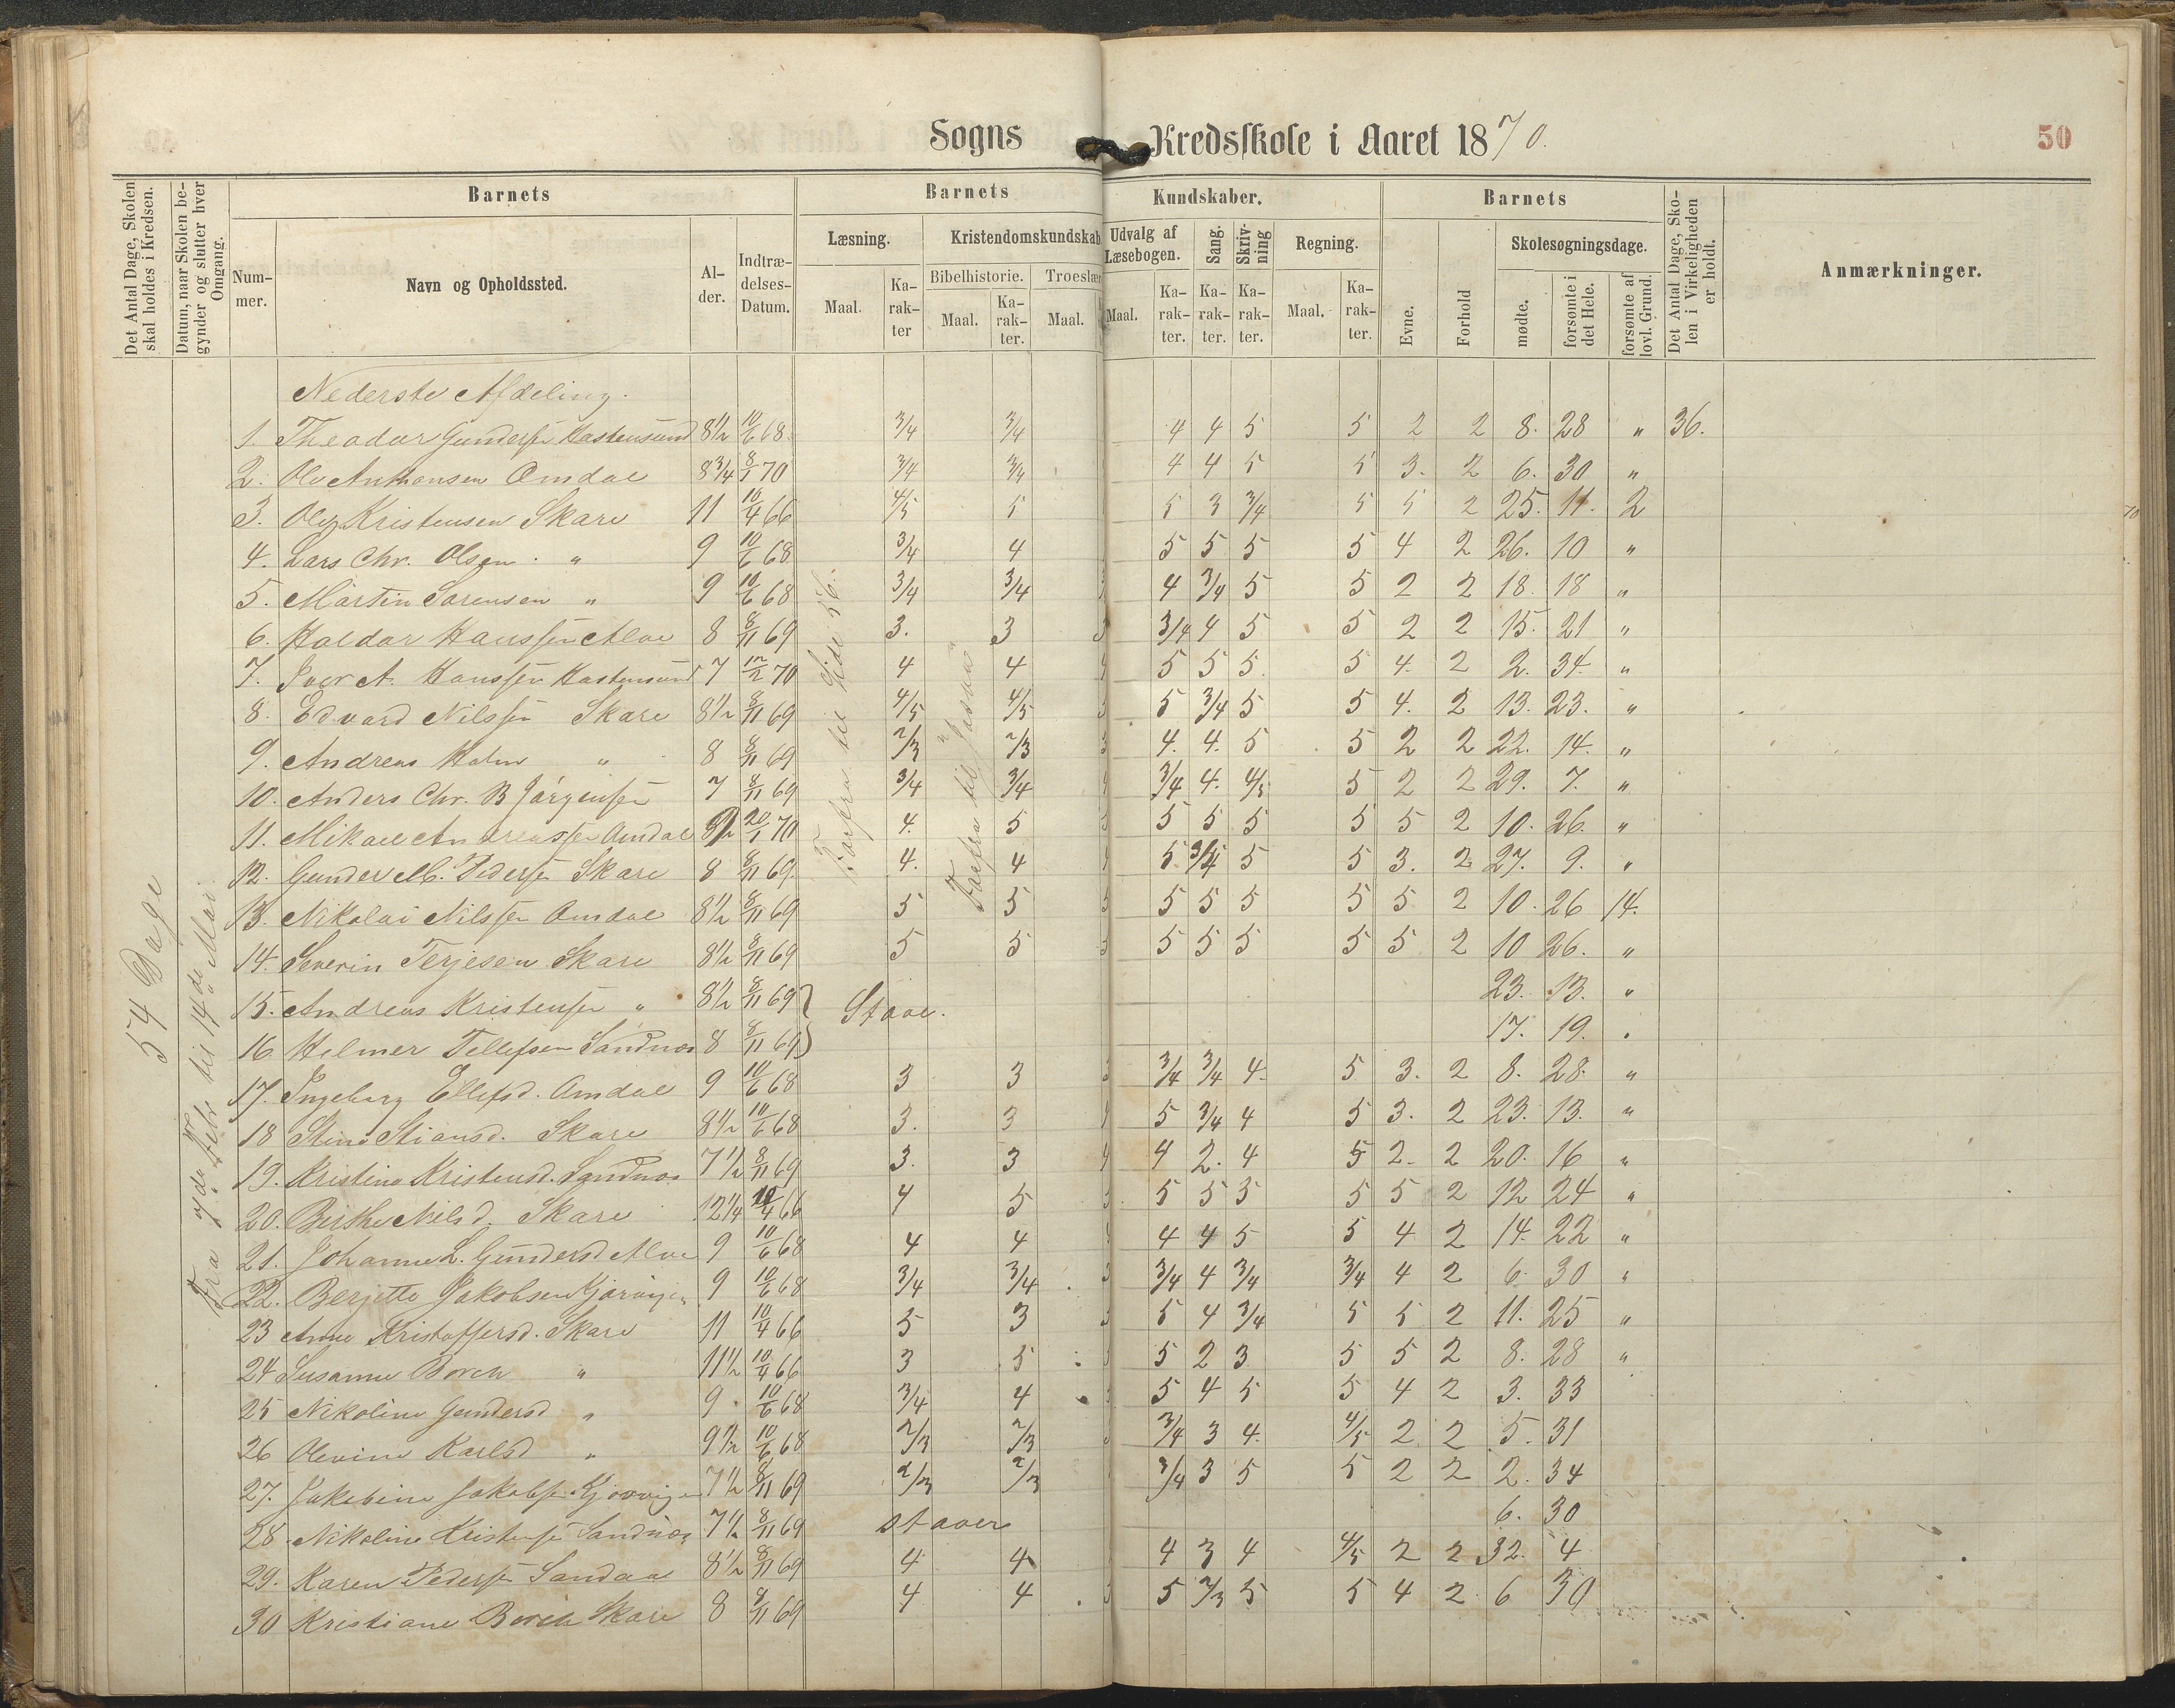 Sogns Kredsskole i Aaret 1870.
50
Det Antal Dage, Skolen skal holdes i Kredsen.
Datum, naar Skolen begynder og slutter hver Omgang.
Barnets
Barnets
Kundskaber.
Barnets
Det Antal Dage, Skolen i Virkeligheden er holdt.
Anmærkninger.
Nummer.
Navn og Opholdssted.
Alder.
Indtrædelses-Datum.
Læsning.
Kristendomskundskab
Udvalg af Læsebogen.
Sang.
Skrivning
Regning.
Evne.
Forhold
Skolesøgningsdage.
Maal.
Karakter
Bibelhistorie.
Troeslær
Maal.
Karakter.
Maal.
Maal.
Karakter.
Karakter.
Karakter.
Maal.
Karakter.
mødte.
forsømte i det Hele.
forsømte af lovl. Grund.
54 Dage
Fra Febr til 14de Mai
Forfra til Side 56.
Forfra til "Josva"
Nederste Afdeling.
1. Theodor Gundersen Hastensund 8½ 10/6 68. 3/4 3/4 4 4 5 5 2 2 8. 28 " 36.
2. Ole Anthonsen Omdal 8¾ 8/1 70 3/4 3/4 4 4 5 5 3. 2 6. 30 "
3. Ole Kristensen Skare 11 10/4 66 4/5 5 5 3 3/4 5 5 2 25. 11. 2
4. Lars Chr. Olsen " 9 10/6 68 3/4 4 5 5 5 5 4 2 26. 10 "
5. Martin Sørensen " 9 10/6 68 3/4 3/4 4 3/4 5 5 2 2 18. 18 "
6. Haldor Hanssen Aloe 8 8/11 69 3. 3 3/4 4 5 5 2 2 15. 21 "
7. Iver A. Hanssen Hastensund 7 12/2 70 4 4 5 5 5. 5 4. 2 2. 34. "
8. Edvard Nilssen Skare 8½ 8/11 69 4/5 4/5 5 3/4 5 5 4. 2 13. 23. "
9. Andreas Holm " 8 8/11 69 2/3 2/3 4. 4. 5 5 2 2 22. 14. "
10. Anders Chr. B Jørgensen 7 8/11 69 3/4 3/4 3/4 4. 4/5 5 2 2 29. 7. "
11. Mikael Andreassen Omdal 20/1 70 4. 5 5 5 5 5 5 2 10. 26. "
12. Gunder M. Pedersen Skare 8 8/11 69 4. 4 5 3/4 5 5 3. 2 27. 9. "
13. Nikolai Nilssen Omdal 8½ 8/11 69 5 5 5 5 5 5 5 2 10. 26 14.
14. Severin Terjesen Skare 8½ 8/11 69 5 5 5 5 5 5 5 2 10 26. "
15. Andreas Kristensen " 8½ 8/11 69 Stave. 23. 13. "
16. Helmer Tellefsen Sandnes 8 8/11 69 17. 19. "
17. Ingeborg Ellefsd. Omdal 9 10/6 68 3 3 3/4 3/4 4. 5 3. 2 8. 28. "
18 Stine Stiansd. Skare 8½ 10/6 68 3. 3 5 3/4 4 5 3. 2 23. 13. "
19. Kristine Kristensd. Sandnes 7½ 8/11 69 3. 3 4 2. 4 5 2. 2 20. 16 "
20. Berthe Nilsd. Skare 12¼ 10/4 66 4 5 5 5 5 5 5 2 12 24 "
21. Johanne L. Gundersd Aloe 9 10/6 68 4 4 4 4 5 5 4 2 14. 22 "
22. Berjette Jakobsen 9 10/6 68 3/4 3/4 3/4 4 3/4 3/4 4 2 6. 30 "
23 Anne Kristoffersd. Skare 11 10/4 66 5 3 5 4 3/4 5 5 2 11. 25 "
24 Susanne Borch " 11½ 10/4 66 3 5 5 2 3 5 5 2 8. 28 "
25 Nikoline Gundersd " 9 10/6 68 3/4 4 5 4 5 5 4 2 3. 33
26 Olevine Karlsd " 9½ 10/6 68 2/3 2/3 3/4 3 4. 4/5 2 2 5. 31
27. Jakobine Jakobsen 7½ 8/11 69 2/3 2/3 3/4 3 5 5 2 2 2. 34
28 Nikoline Kristensen Sandnes 7½ 8/11 69 staver 6. 30
29. Karen Pedersen Sandaa 8½ 8/11 69 4 4 4 3 4 4/5 2 2 32. 4
30 Kristiane Borch Skare 8 8/11 69 4 4 5 2/3 5 5 4 2 6 30